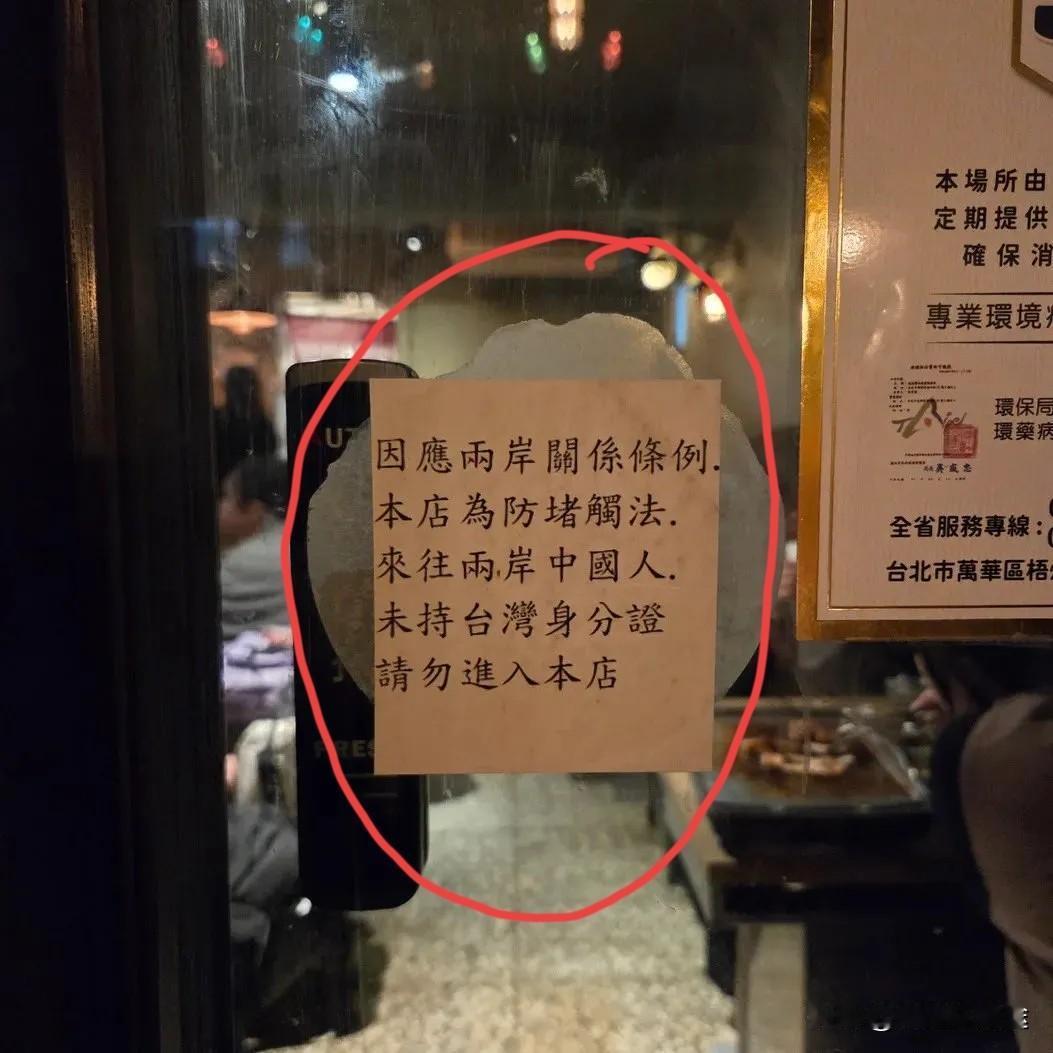 因應兩岸關係條例.
本店為防堵觸法.
來往兩岸中國人.
未持台灣身分證
請勿進入本店
本場所由
定期提供
確保消
專業環境
環保局
環藥病
全省服務專線:
台北市萬華區梧